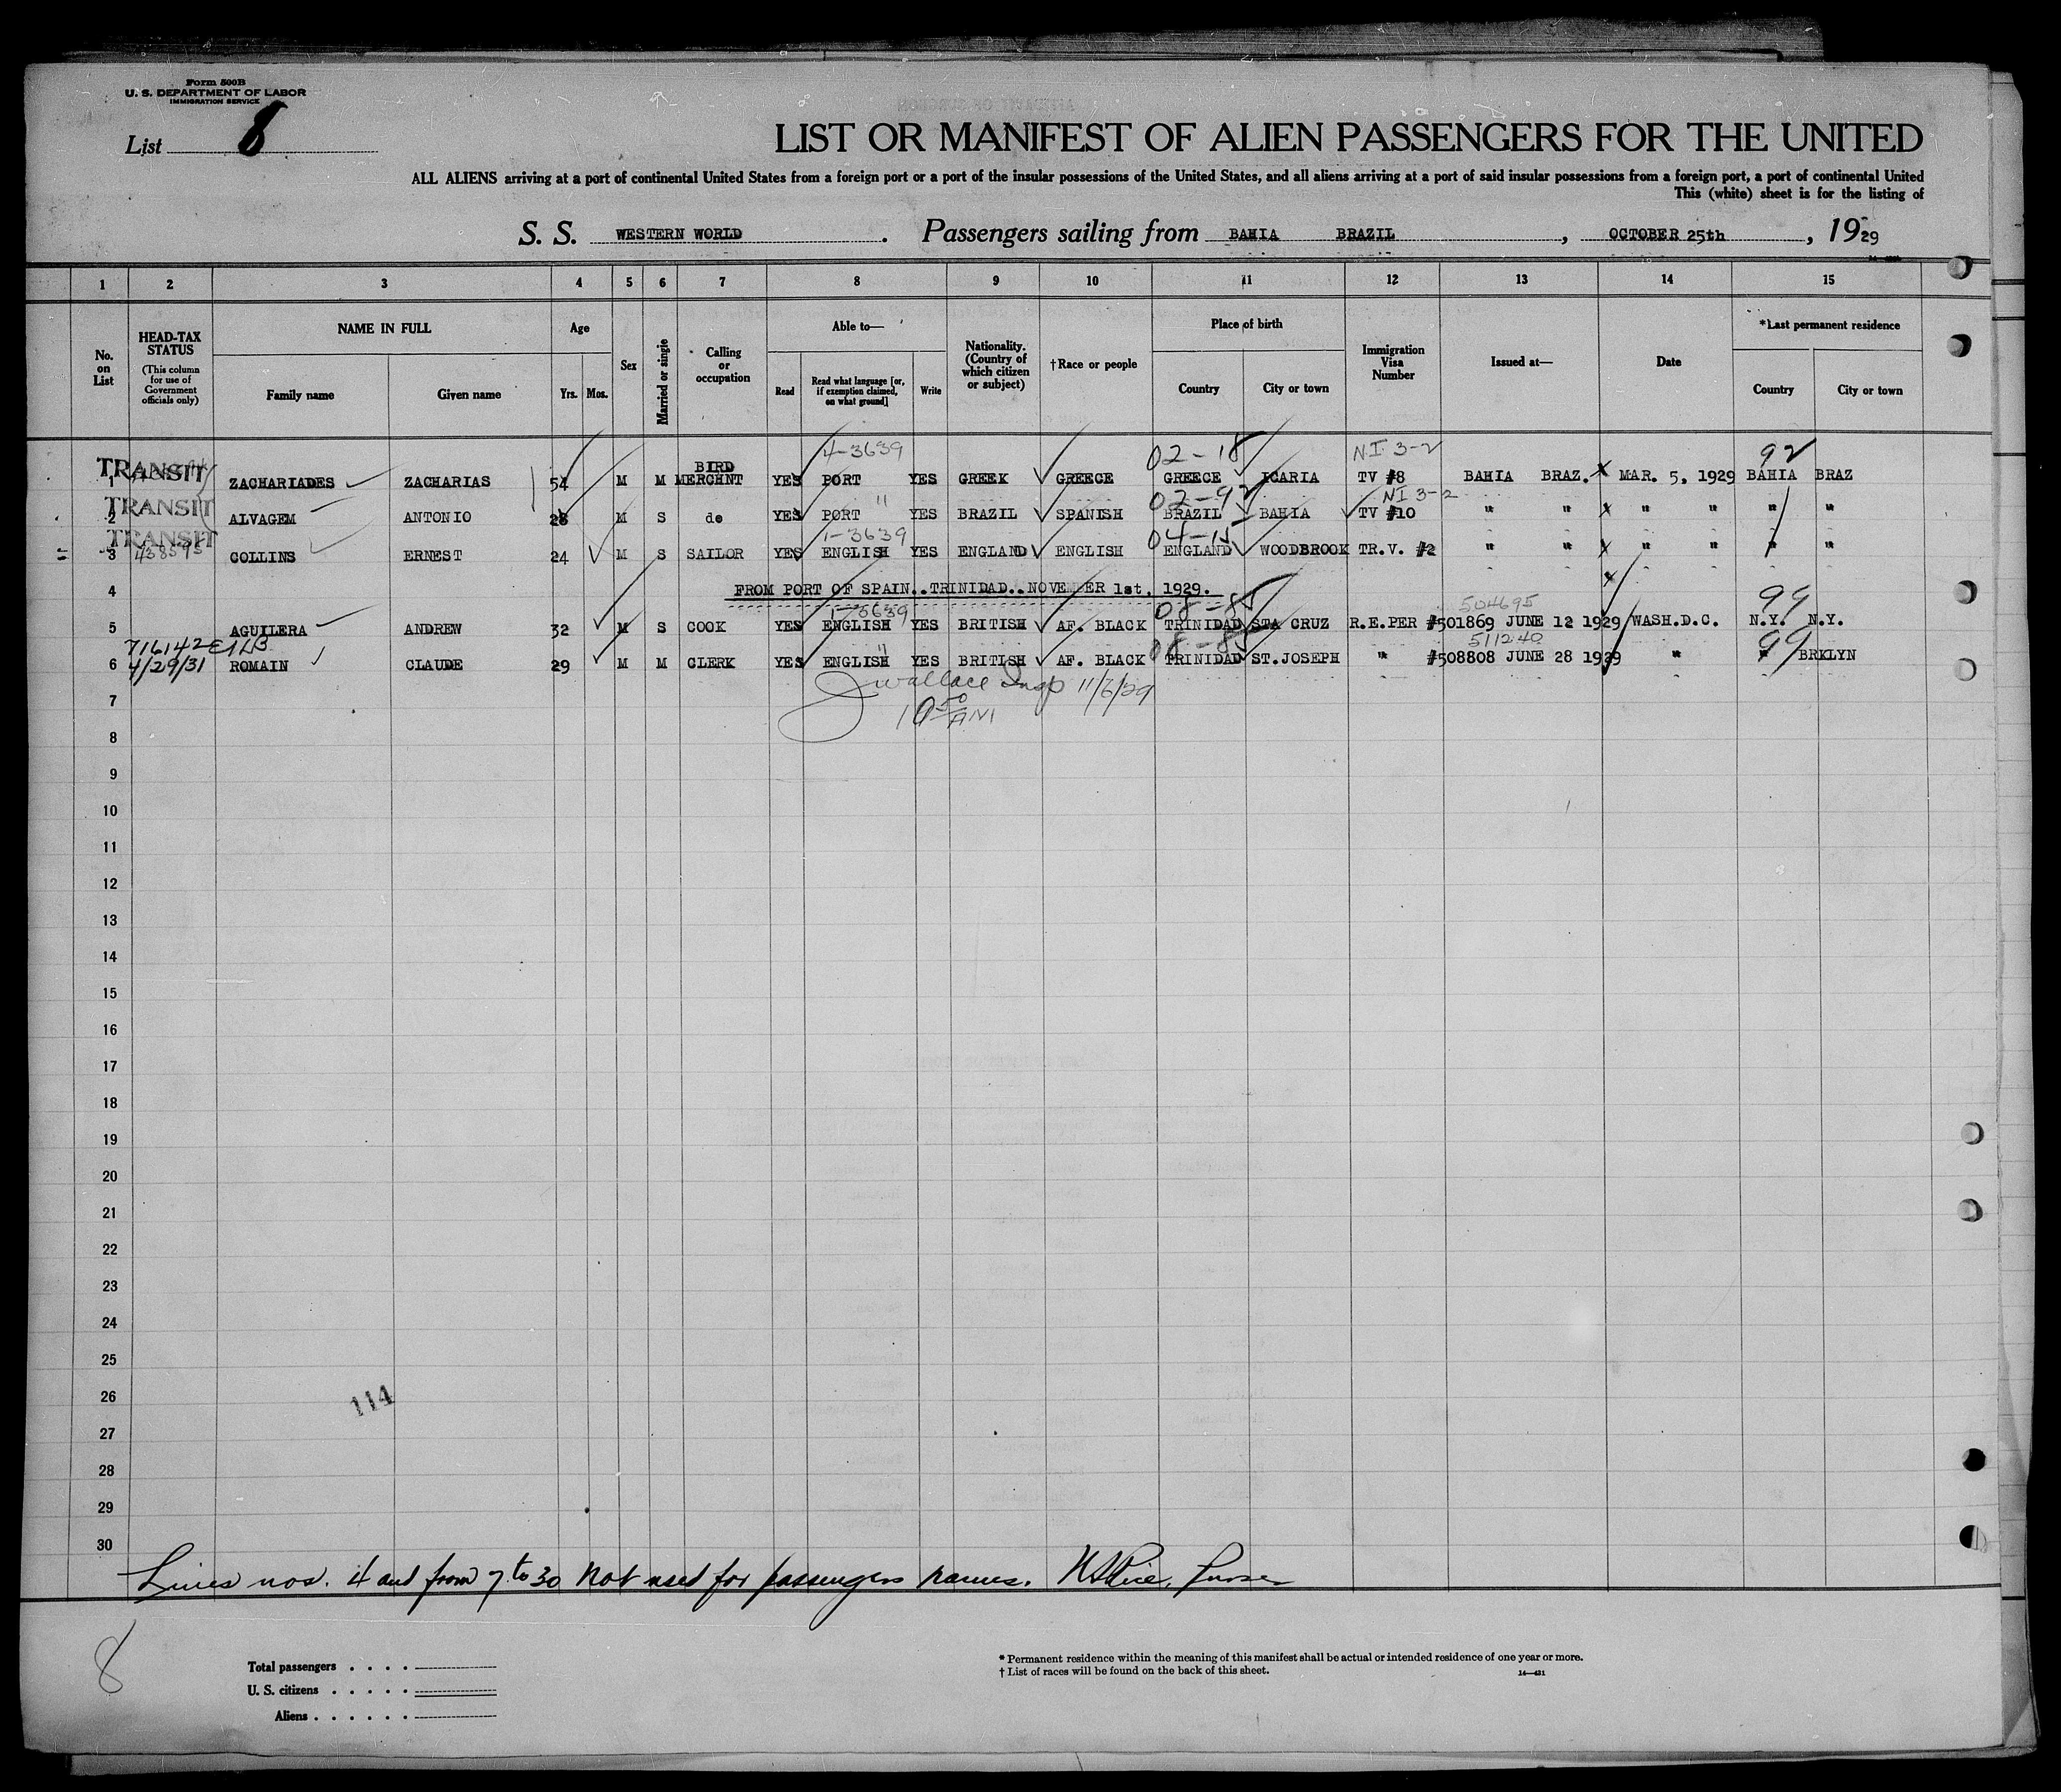 Form 500B
U. S. DEPARTMENT OF LABOR
IMMIGRATION SERVICE
List 8
LIST OR MANIFEST OF ALIEN PASSENGERS FOR THE UNITED
ALL ALIENS arriving at a port of continental United States from a foreign port or a port of the insular possessions of the United States, and all aliens arriving at a port of said insular possessions from a foreign port, a port of continental United
This (white) sheet is for the listing of
S. S. WESTERN WORLD. Passengers sailing from BAHIA BRAZIL, OCTOBER 25th, 1929
1 2 3 4 5 6 7 8 9 10 11 12 13 14 15
No. on List
HEAD-TAX STATUS (This column for use of Government officials only)
NAME IN FULL
Family name
Given name
Age
Yrs.
Mos.
Sex
Married or single
Calling or occupation
Able to—
Read
Read what language [or, if exemption claimed, on what ground]
Write
Nationality. (Country of which citizen or subject)
†Race or people
Place of birth
Country
City or town
Immigration Visa Number
Issued at—
Date
*Last permanent residence
Country
City or town
4-3639 02-18 N.I 3-2 92
TRANSIT
1 ZACHARIADES ZACHARIAS 54 M M BIRD MERCHNT YES PORT YES GREEK GREECE GREECE ICARIA TV #8 BAHIA BRAZ. MAR. 5, 1929 BAHIA BRAZ
TRANSIT " 02-92 NI 3-2
2 ALVAGEM ANTONIO 28 M S do YES PORT YES BRAZIL SPANISH BRAZIL BAHIA TV #10 " " " " " "
TRANSIT 1-3639 04-15
3 438595 COLLINS ERNEST 24 M S SAILOR YES ENGLISH YES ENGLAND ENGLISH ENGLAND WOODBROOK TR.V. #2 " " " " " "
4 FROM PORT OF SPAIN..TRINIDAD..NOVEMER 1st, 1929.
1-3639 08-85 504695 99
5 AGUILERA ANDREW 32 M S COOK YES ENGLISH YES BRITISH AF. BLACK TRINIDAD STA CRUZ R.E.PER #501869 JUNE 12 1929 WASH.D.C. N.Y. N.Y.
716142 " 08-85 511240 99
6 4/29/31 ROMAIN CLAUDE 29 M M CLERK YES ENGLISH YES BRITISH AF. BLACK TRINIDAD ST.JOSEPH " #508808 JUNE 28 1929 " " BRKLYN
Wallace Insp 11/6/29
7 10 50 AM
8
9
10
11
12
13
14
15
16
17
18
19
20
21
22
23
24
25
26
114
27
28
29
30
Lines nos. 4 and from 7 to 30 not used for passengers names. Purser
8
Total passengers
U. S. citizens
Aliens
* Permanent residence within the meaning of this manifest shall be actual or intended residence of one year or more.
† List of races will be found on the back of this sheet.
14—421